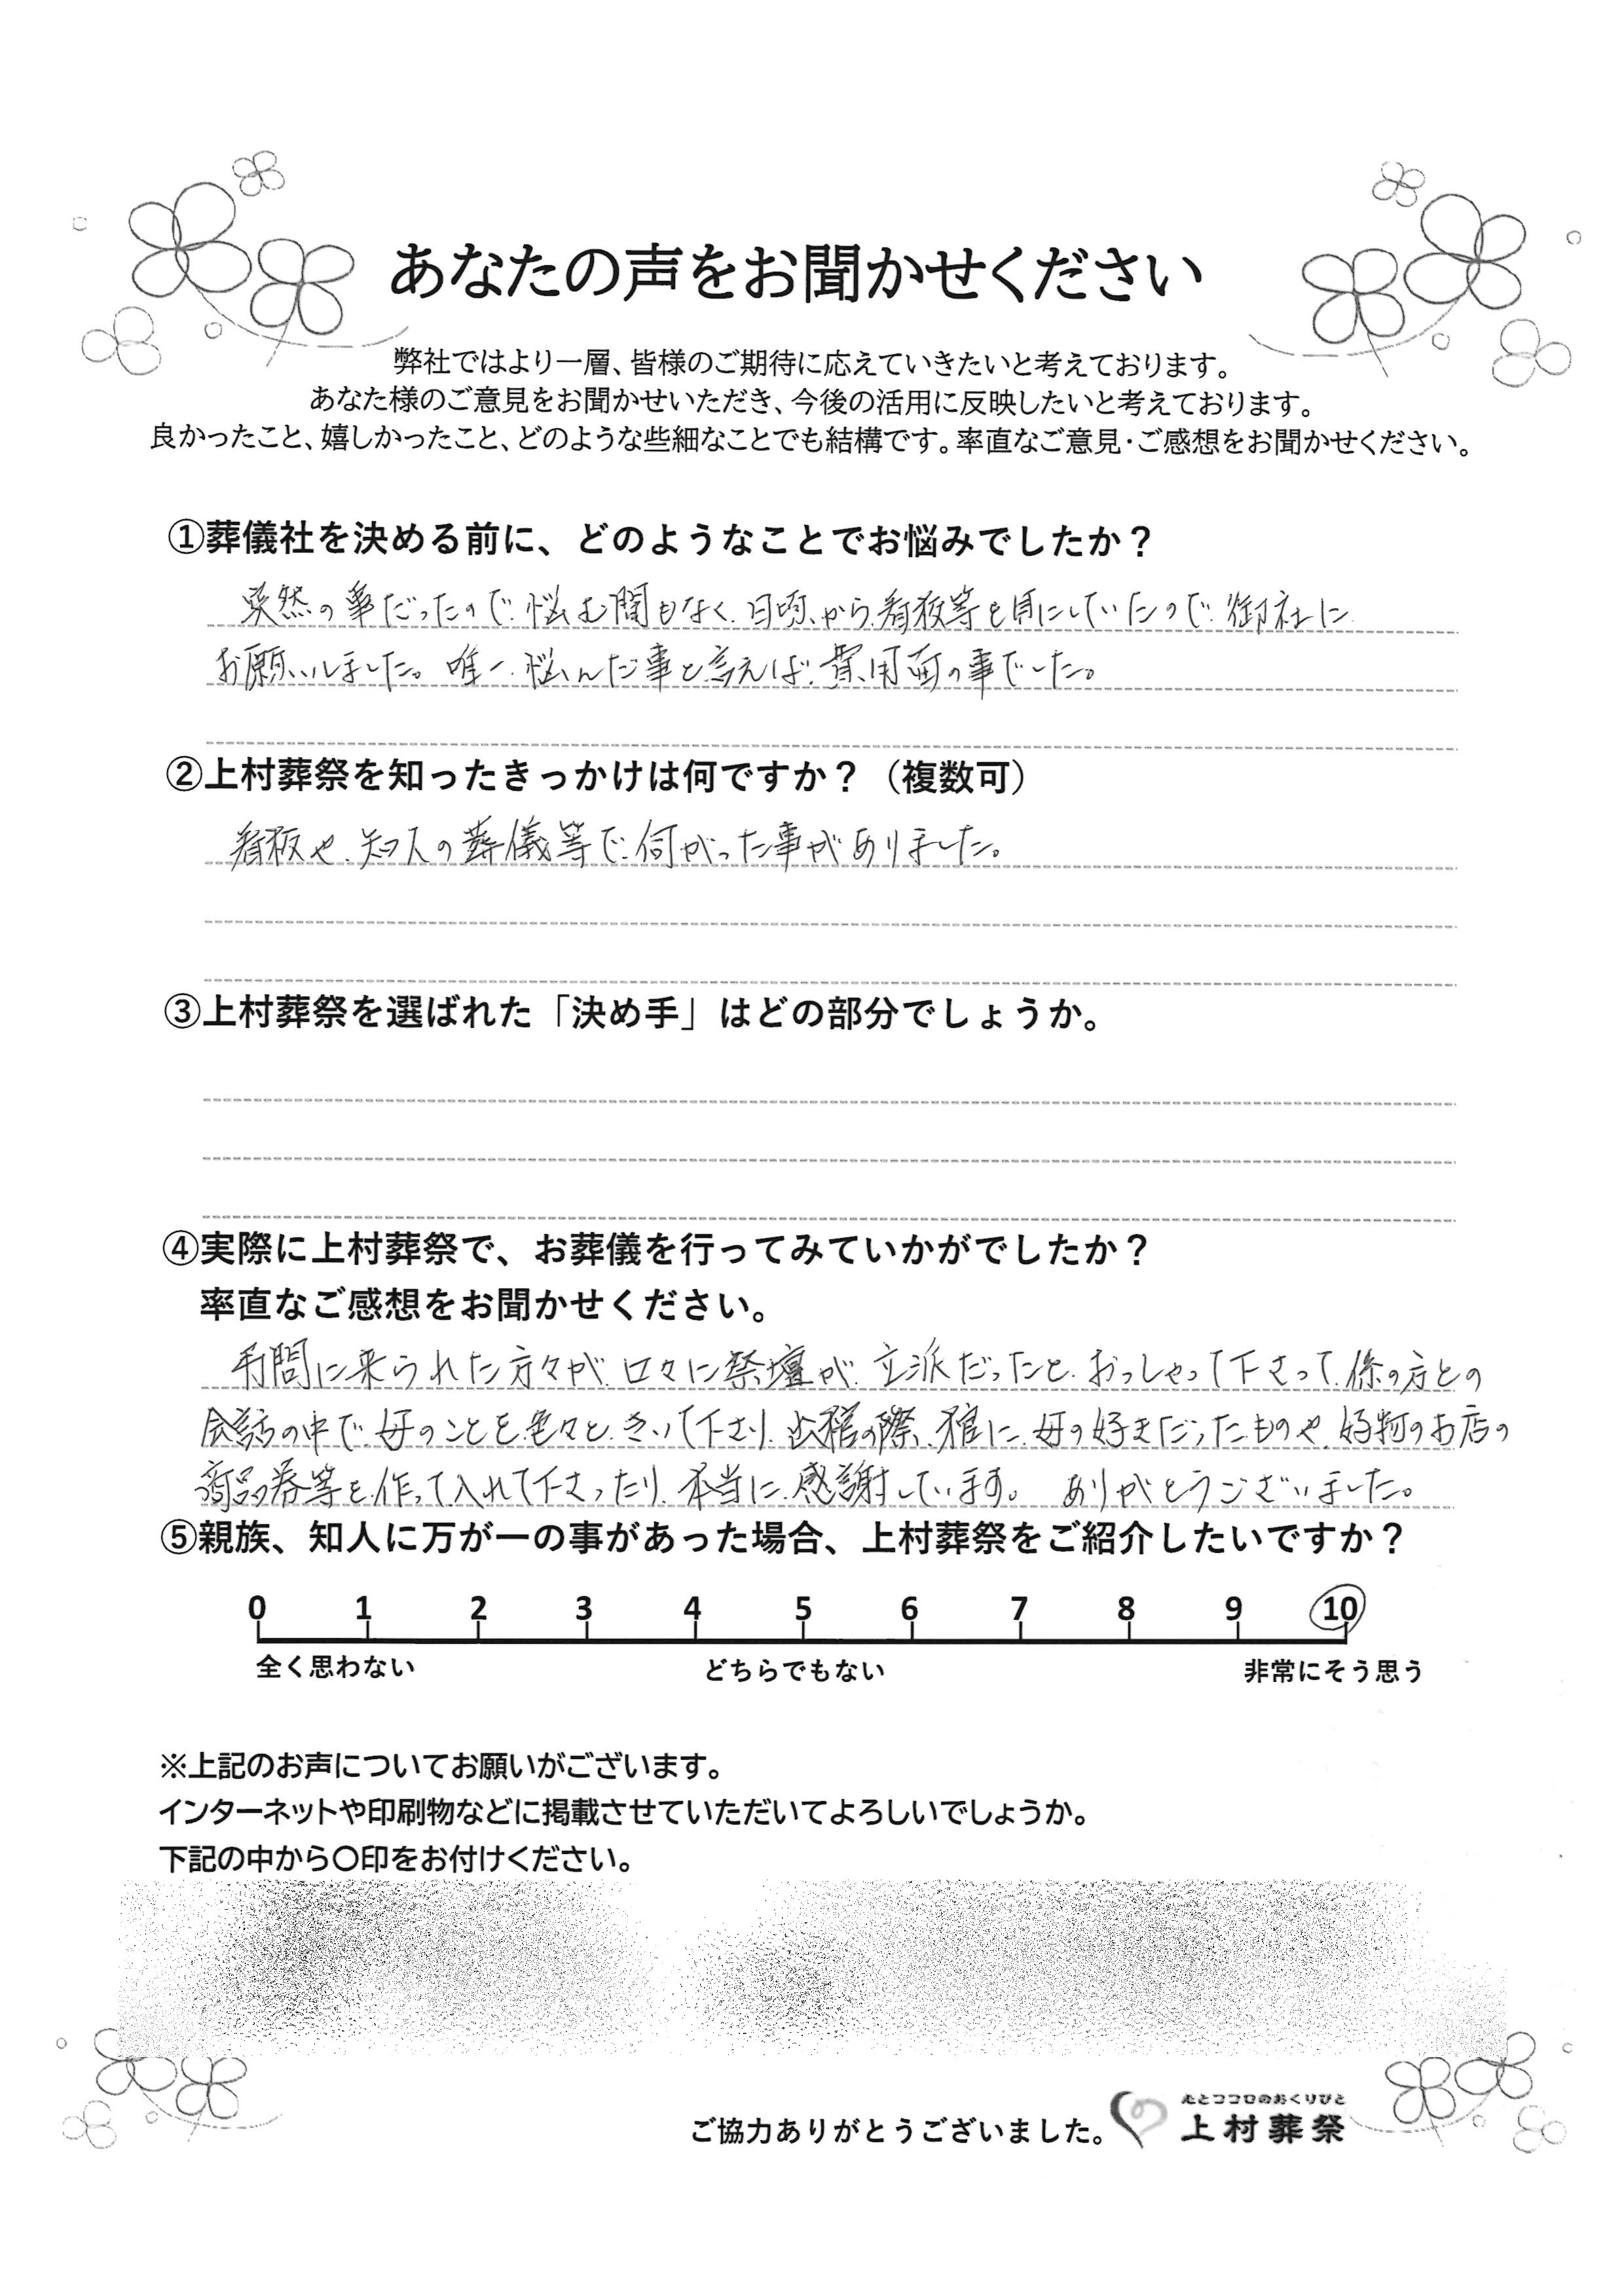 あなたの声をお聞かせください
弊社ではより一層、皆様のご期待に応えていきたいと考えております。
あなた様のご意見をお聞かせいただき、今後の活用に反映したいと考えております。
良かったこと、嬉しかったこと、どのような些細なことでも結構です。率直なご意見・ご感想をお聞かせください。
①葬儀社を決める前に、どのようなことでお悩みでしたか？
突然の事だったので、悩む間もなく、日頃、から、看板等を目にしていたので、御社に
お願いしました。唯一、悩んだ事と言えば、費用面の事でした。
②上村葬祭を知ったきっかけは何ですか？（複数可）
看板や、知人の葬儀等で、伺がった事がありました。
③上村葬祭を選ばれた「決め手」はどの部分でしょうか。
④実際に上村葬祭で、お葬儀を行ってみていかがでしたか？
率直なご感想をお聞かせください。
弔問に来られた方々が、口々に祭壇が、立派だったと、おっしゃって下さって、係の方との
会話の中で、母のことを色々と、きいて下さり、出棺の際、棺に、母の好きだったものや、好物のお店の
商品券等を、作って、入れて下さったり、本当に、感謝しています。 ありがとうございました。
⑤親族、知人に万が一の事があった場合、上村葬祭をご紹介したいですか？
0 1 2 3 4 5 6 7 8 9 10
全く思わない どちらでもない 非常にそう思う
※上記のお声についてお願いがございます。
インターネットや印刷物などに掲載させていただいてよろしいでしょうか。
下記の中から〇印をお付けください。
ご協力ありがとうございました。
心とココロのおくりびと
上村葬祭